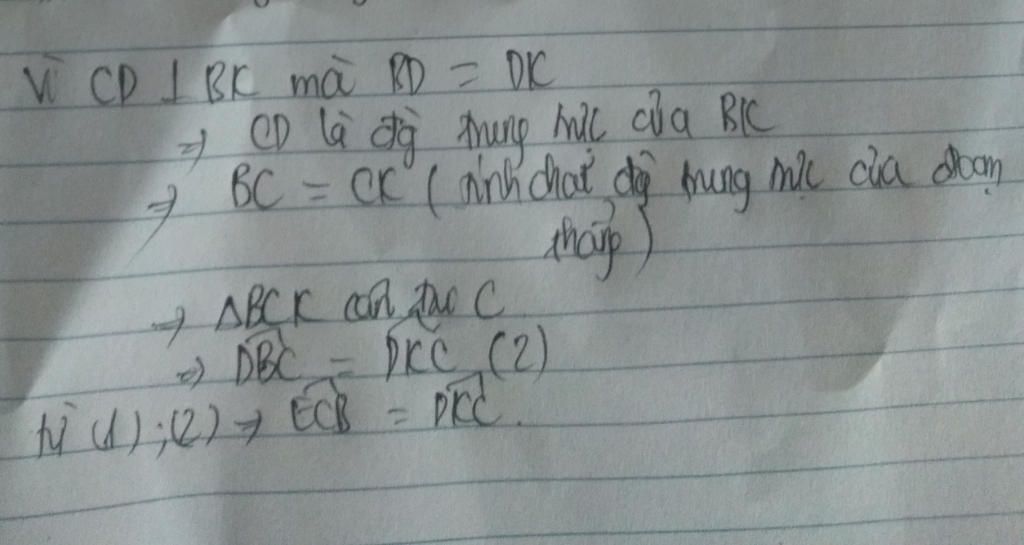 Vì CD ⊥ BK mà BD = DK
⇒ CD là đg trung trực của BK
⇒ BC = CK (tính chất đg trung trực của đoạn
thẳng)
⇒ ΔBCK cân tại C
⇒ \widehat{DBC} = \widehat{DKC} (2)
từ (1);(2) ⇒ \widehat{ECB} = \widehat{DKC}.